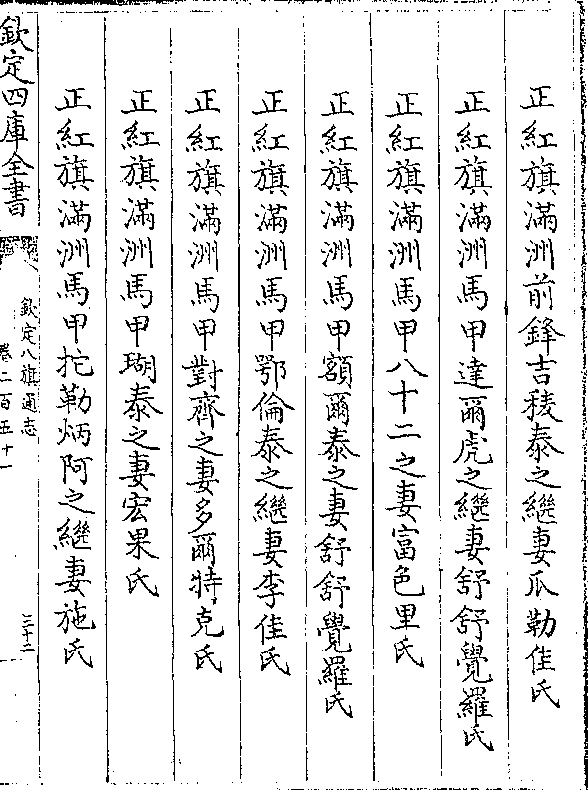 正紅旗滿洲前鋒吉稜泰之繼妻瓜勒佳氏
正紅旗滿洲馬甲達爾虎之繼妻舒舒覺羅氏
正紅旗滿洲馬甲八十二之妻富色里氏
正紅旗滿洲馬甲額爾泰之妻舒舒覺羅氏
正紅旗滿洲馬甲鄂倫泰之繼妻李佳氏
正紅旗滿洲馬甲對齊之妻多爾特克氏
正紅旗滿洲馬甲瑚泰之妻宏果氏
正紅旗滿洲馬甲拕勒炳阿之繼妻施氏
欽定四庫全書
欽定八旗通志
卷二百五十一
三十二